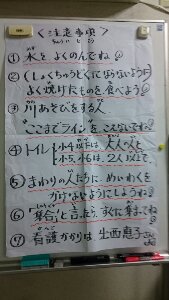 〈注意事項〉
ちゅういじこう
① 水をよくのんでね
② (しょくちゅうどくにならないように)
よく焼けたものを食べよう
③ 川あそびをする人
"ここまでライン"をこさないでネ。
④ トイレ 小4以下は、大人の人と
小5、小6は、2人以上で、
⑤ まわりの人たちに、めいわくを
かけないようにしようね
⑥「集合」と言ったら、すぐに集まってね
⑦ 看護かかりは